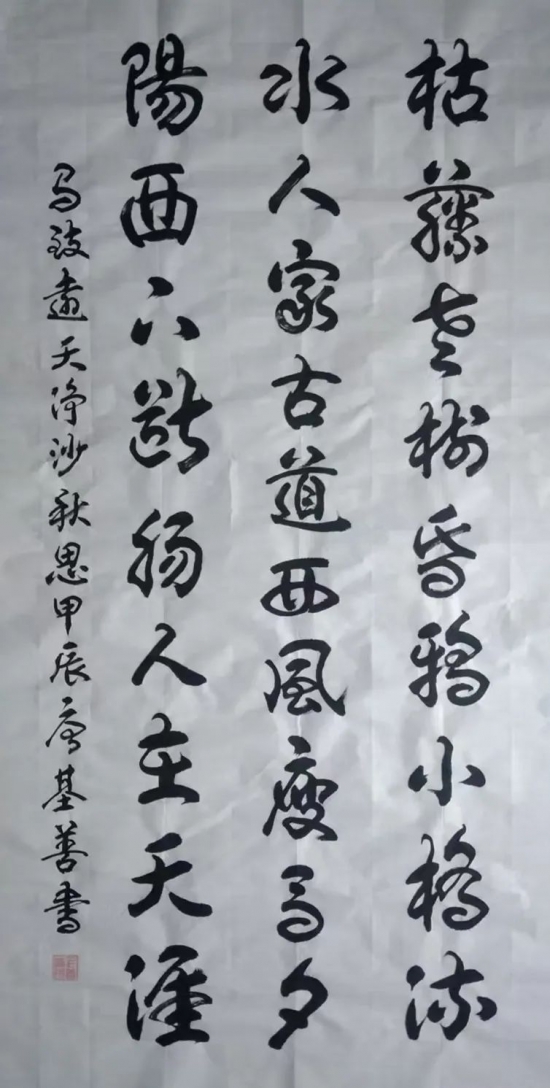 枯藤老樹昏鴉小橋流
水人家古道西風瘦馬夕
陽西下斷腸人在天涯
馬致遠天淨沙秋思甲辰基善書